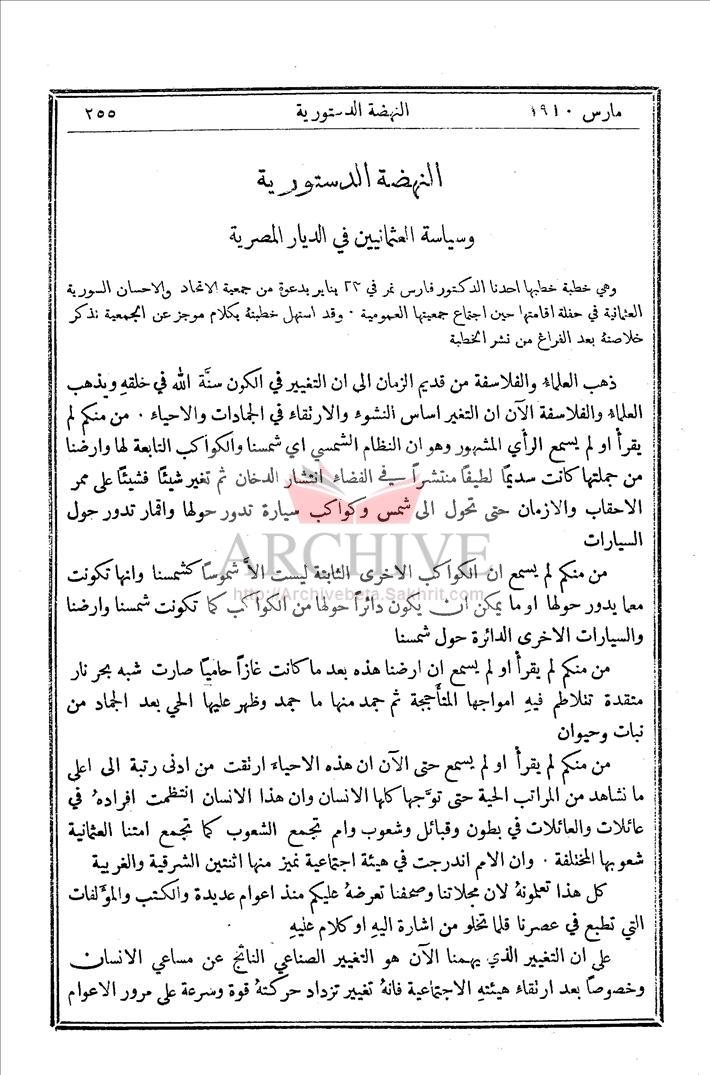 مارس ١٩١٠ النهضة الدستورية ٢٥٥
النهضة الدستورية
وسياسة العثمانيين في الديار المصرية
وهي خطبة خطبها احدنا الدكتور فارس نمر في ٢٢ يناير بدعوة من جمعية الاتحاد والاحسان السورية
العثمانية في حفلة اقامتها حين اجتماع جمعيتها العمومية ٠ وقد استهل خطبتهُ بكلام موجز عن الجمعية نذكر
خلاصتهُ بعد الفراغ من نشر الخطبة
ذهب العلماءُ والفلاسفة من قديم الزمان الى ان التغيير في الكون سنَّة الله في خلقهِ ويذهب
العلماءُ والفلاسفة الآن ان التغير اساس النشوء والارتقاء في الجمادات والاحياء ٠ من منكم لم
يقرأ او لم يسمع الرأي المشهور وهو ان النظام الشمسي اي شمسنا والكواكب التابعة لها وارضنا
من جملتها كانت سديمًا لطيفًا منتشراً في الفضاء انتشار الدخان ثم تغير شيئًا فشيئًا على ممر
الاحقاب والازمان حتى تحول الى شمس وكواكب سيارة تدور حولها واقمار تدور حول
السيارات
ARCHIVE
من منكم لم يسمع ان الكواكب الاخرى الثابتة ليست الاَّ شموسًا كشمسنا وانها تكونت
http://Archivebeta.Sakhrit.com
معما يدور حولها او ما يمكن ان يكون دائرًا حولها من الكواكب كما تكونت شمسنا وارضنا
والسيارات الاخرى الدائرة حول شمسنا
من منكم لم يقرأ او لم يسمع ان ارضنا هذه بعد ما كانت غازاً حاميًا صارت شبه بحر نار
متقدة تتلاطم فيهِ امواجها المتأججة ثم جمد منها ما جمد وظهر عليها الحي بعد الجماد من
نبات وحيوان
من منكم لم يقرأ او لم يسمع حتى الآن ان هذه الاحياء ارتقت من ادنى رتبة الى اعلى
ما نشاهد من المراتب الحية حتى توَّجها كلها الانسان وان هذا الانسان انتظمت افرادهُ في
عائلات والعائلات في بطون وقبائل وشعوب وامم تجمع الشعوب كما تجمع امتنا العثمانية
شعوبها المختلفة ٠ وان الامم اندرجت في هيئة اجتماعية نميز منها اثنتين الشرقية والغربية
كل هذا تعلمونهُ لان مجلاتنا وصحفنا تعرضهُ عليكم منذ اعوام عديدة والكتب والمؤلفات
التي تطبع في عصرنا قلما تخلو من اشارة اليهِ او كلام عليهِ
على ان التغيير الذي يهمنا الآن هو التغيير الصناعي الناتج عن مساعي الانسان
وخصوصاً بعد ارتقاء هيئتهِ الاجتماعية فانهُ تغيير تزداد حركتهُ قوة وسرعة على مرور الاعوام